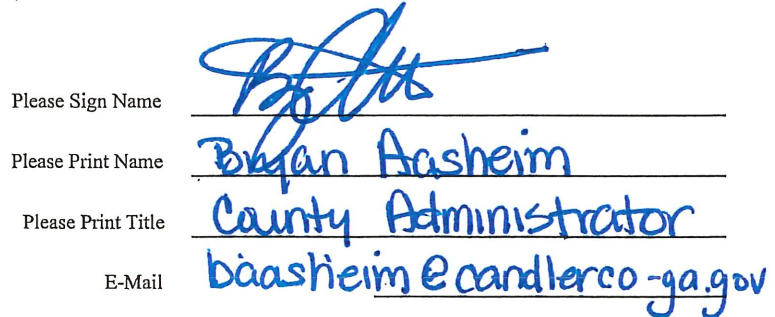 Please Sign Name
Please Print Name Bryan Aasheim
Please Print Title County Administrator
E-Mail baasheim@candlerco-ga.gov